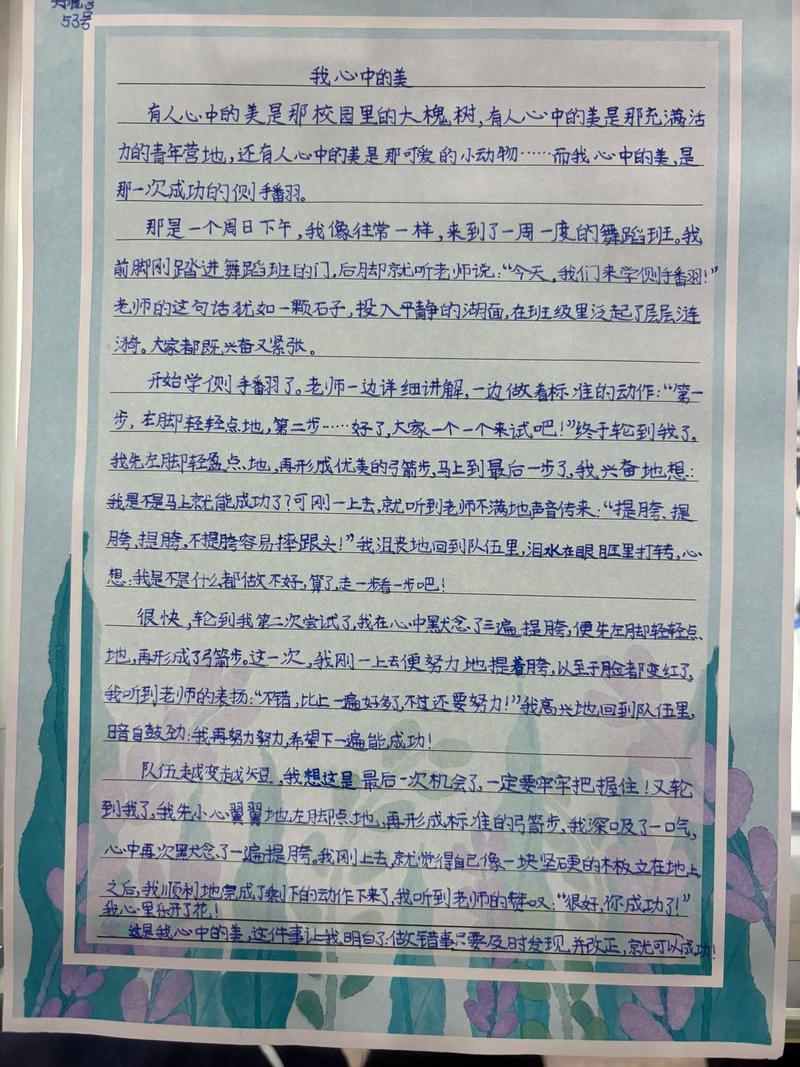 53号
我心中的美
有人心中的美是那校园里的大槐树,有人心中的美是那充满活
力的青年营地,还有人心中的美是那可爱的小动物……而我心中的美,是
那一次成功的侧手翻。
那是一个周日下午,我像往常一样,来到了一周一度的舞蹈班。我
前脚刚踏进舞蹈班的门,后脚就听老师说:“今天,我们来学侧手翻!”
老师的这句话犹如一颗石子,投入平静的湖面,在班级里泛起了层层涟
漪。大家都既兴奋又紧张。
开始学侧手翻了。老师一边详细讲解,一边做着标准的动作:“第一
步,左脚轻轻点地,第二步……好了,大家一个一个来试吧!”终于轮到我了。
我先左脚轻盈点地,再形成优美的弓箭步,马上到最后一步了,我兴奋地想:
我是不是马上就能成功了?可刚一上去,就听到老师不满地声音传来:“提胯、提
胯,提胯,不提胯容易摔跟头!”我沮丧地回到队伍里,泪水在眼眶里打转,心
想:我是不是什么都做不好,算了,走一步看一步吧!
很快,轮到我第二次尝试了,我在心中默念了三遍提胯,便先左脚轻轻点
地,再形成了弓箭步。这一次,我刚一上去便努力地提着胯,以至于脸都变红了,
我听到老师的表扬:“不错,比上一遍好多了,不过还要努力!”我高兴地回到队伍里,
暗自鼓劲:我再努力努力,希望下一遍能成功!
队伍越变越短,我想这是最后一次机会了,一定要牢牢把握住!又轮
到我了,我先小心翼翼地左脚点地,再形成标准的弓箭步,我深吸了一口气,
心中再次默念了一遍提胯。我刚上去,就觉得自己像一块坚硬的木板立在地上,
之后,我顺利地完成了剩下的动作下来了,我听到老师的赞叹:“很好,你成功了!”
我心里乐开了花!
这是我心中的美,这件事让我明白了:做错事只要及时发现,并改正,就可以成功!